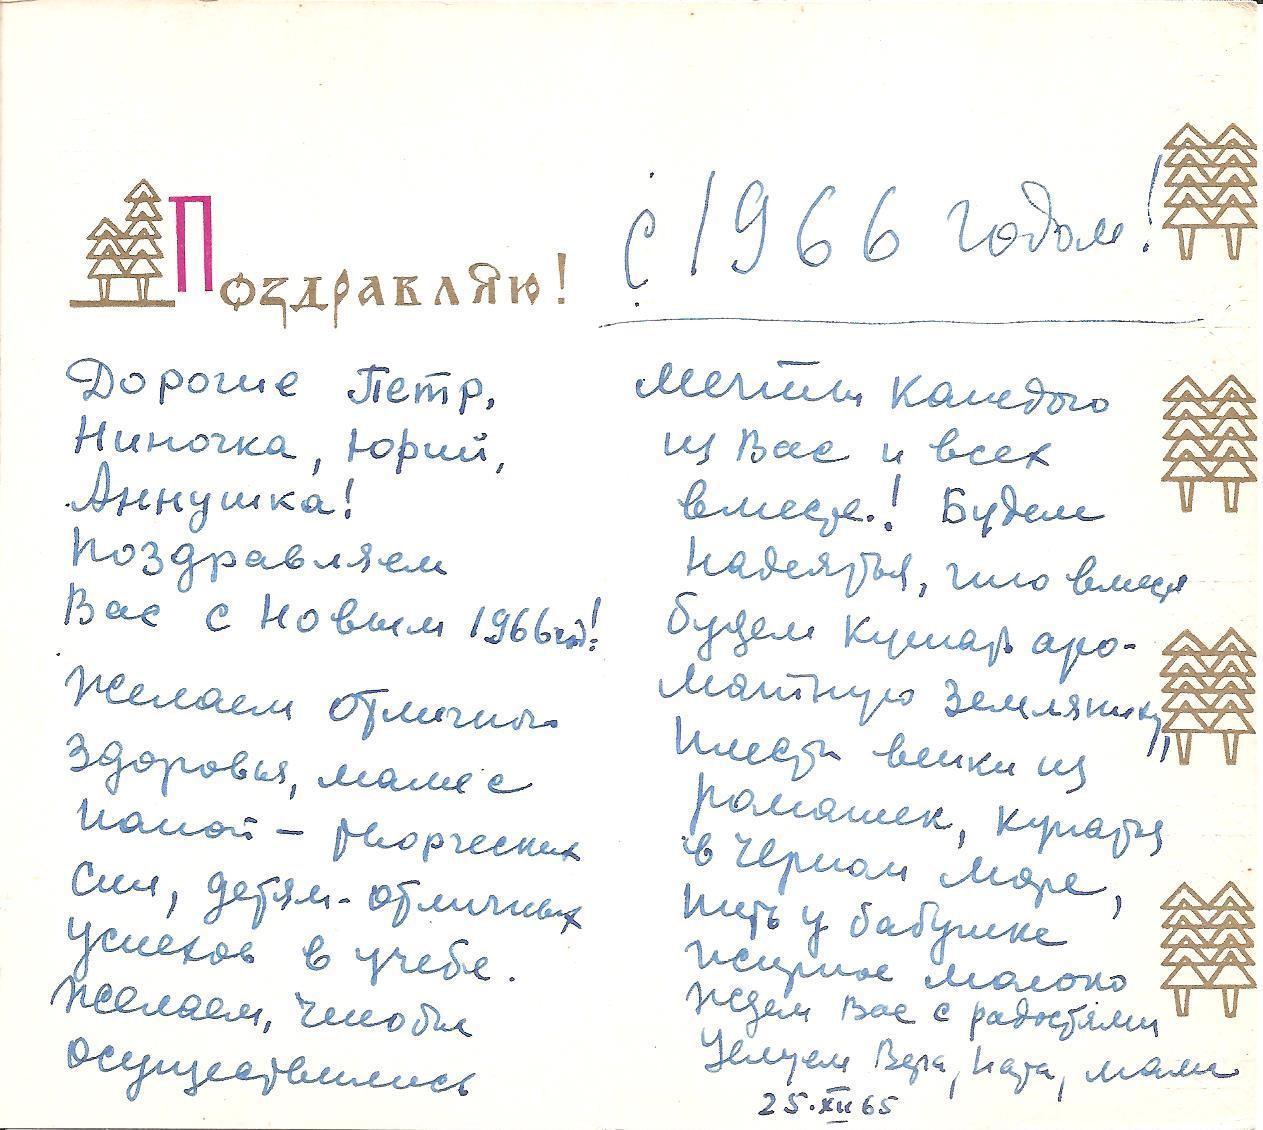 Поздравляю!
с 1966 годом!
Дорогие Петр,
Ниночка, Юрий,
Аннушка!
Поздравляем
Вас с Новым 1966 год!
Желаем отличного
здоровья, маме с
папой – творческих
сил, детям - отличных
успехов в учебе.
Желаем, чтобы
осуществились
мечты каждого
из Вас и всех
вместе! Будем
надеяться, что вместе
будем кушать аро-
матную землянику,
плести венки из
ромашек, купаться
в Черном море,
пить у бабушки
молоко
Ждем Вас с радостями
Целуем Вера, Ната, мама
25.XII 65